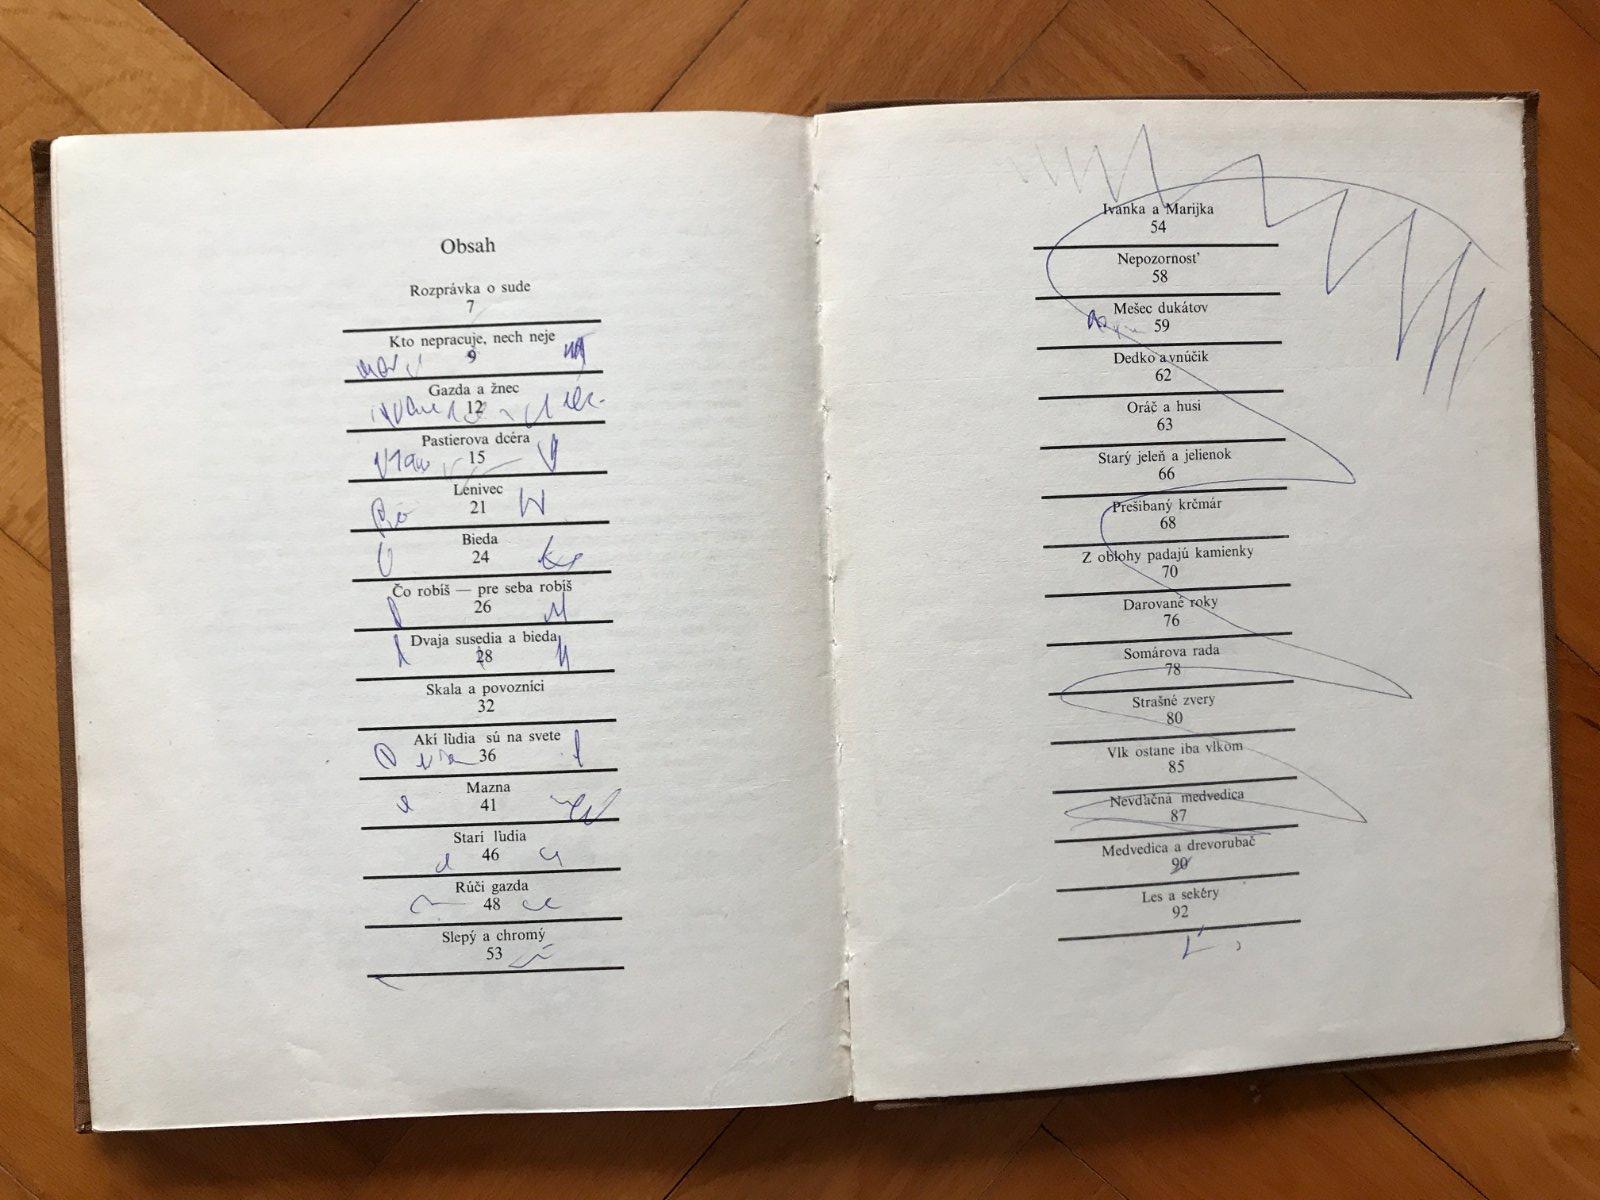 Obsah
Rozprávka o sude
7
Kto nepracuje, nech neje
9
Gazda a žnec
12
Pastierova dcéra
15
Lenivec
21
Bieda
24
Čo robíš — pre seba robíš
26
Dvaja susedia a bieda
28
Skala a povozníci
32
Akí ľudia sú na svete
36
Mazna
41
Starí ľudia
46
Rúči gazda
48
Slepý a chromý
53
Ivanka a Marijka
54
Nepozornosť
58
Mešec dukátov
59
Dedko a vnúčik
62
Oráč a husi
63
Starý jeleň a jelienok
66
Prešibaný krčmár
68
Z oblohy padajú kamienky
70
Darované roky
76
Somárova rada
78
Strašné zvery
80
Vlk ostane iba vlkom
85
Nevďačná medvedica
87
Medvedica a drevorubač
90
Les a sekéry
92